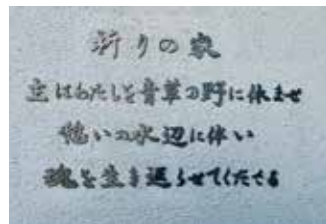 祈りの家
主はわたしを青草の野に休ませ
憩いの水辺に伴い
魂を生き返らせてくださる